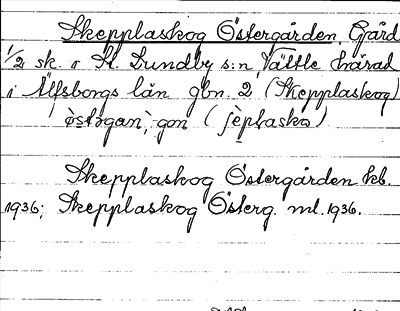 Skepplaskog Östergården, Gård
1/2 sk. i St. Lundby s:n, Vättle härad
i Älfsborgs län gbn. 2 (Skepplaskog)
östərgan, gon (ʃèplaskə)
Skepplaskog Östergården kb.
1936; Skepplaskog Österg. ml. 1936.